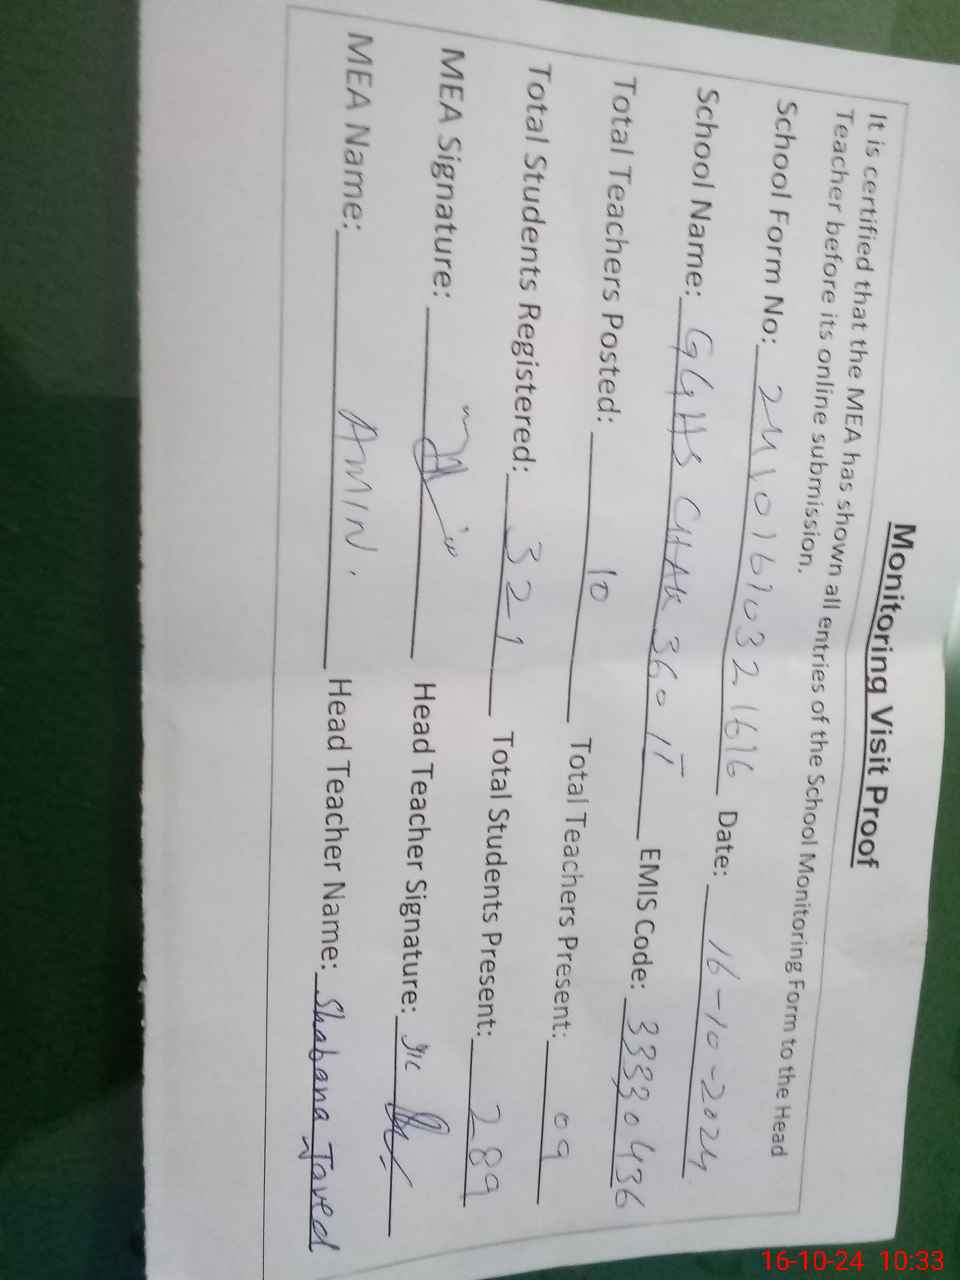 Monitoring Visit Proof
It is certified that the MEA has shown all entries of the School Monitoring Form to the Head
Teacher before its online submission.
School Form No: Date: 16-10-2024
School Name: GGHS CHAK 360 EMIS Code: 33330436
Total Teachers Posted: 10 Total Teachers Present: 09
Total Students Registered: 321 Total Students Present: 289
MEA Signature: Head Teacher Signature:
MEA Name: AMIN. Head Teacher Name: Shabana Javed
16-10-24 10:33